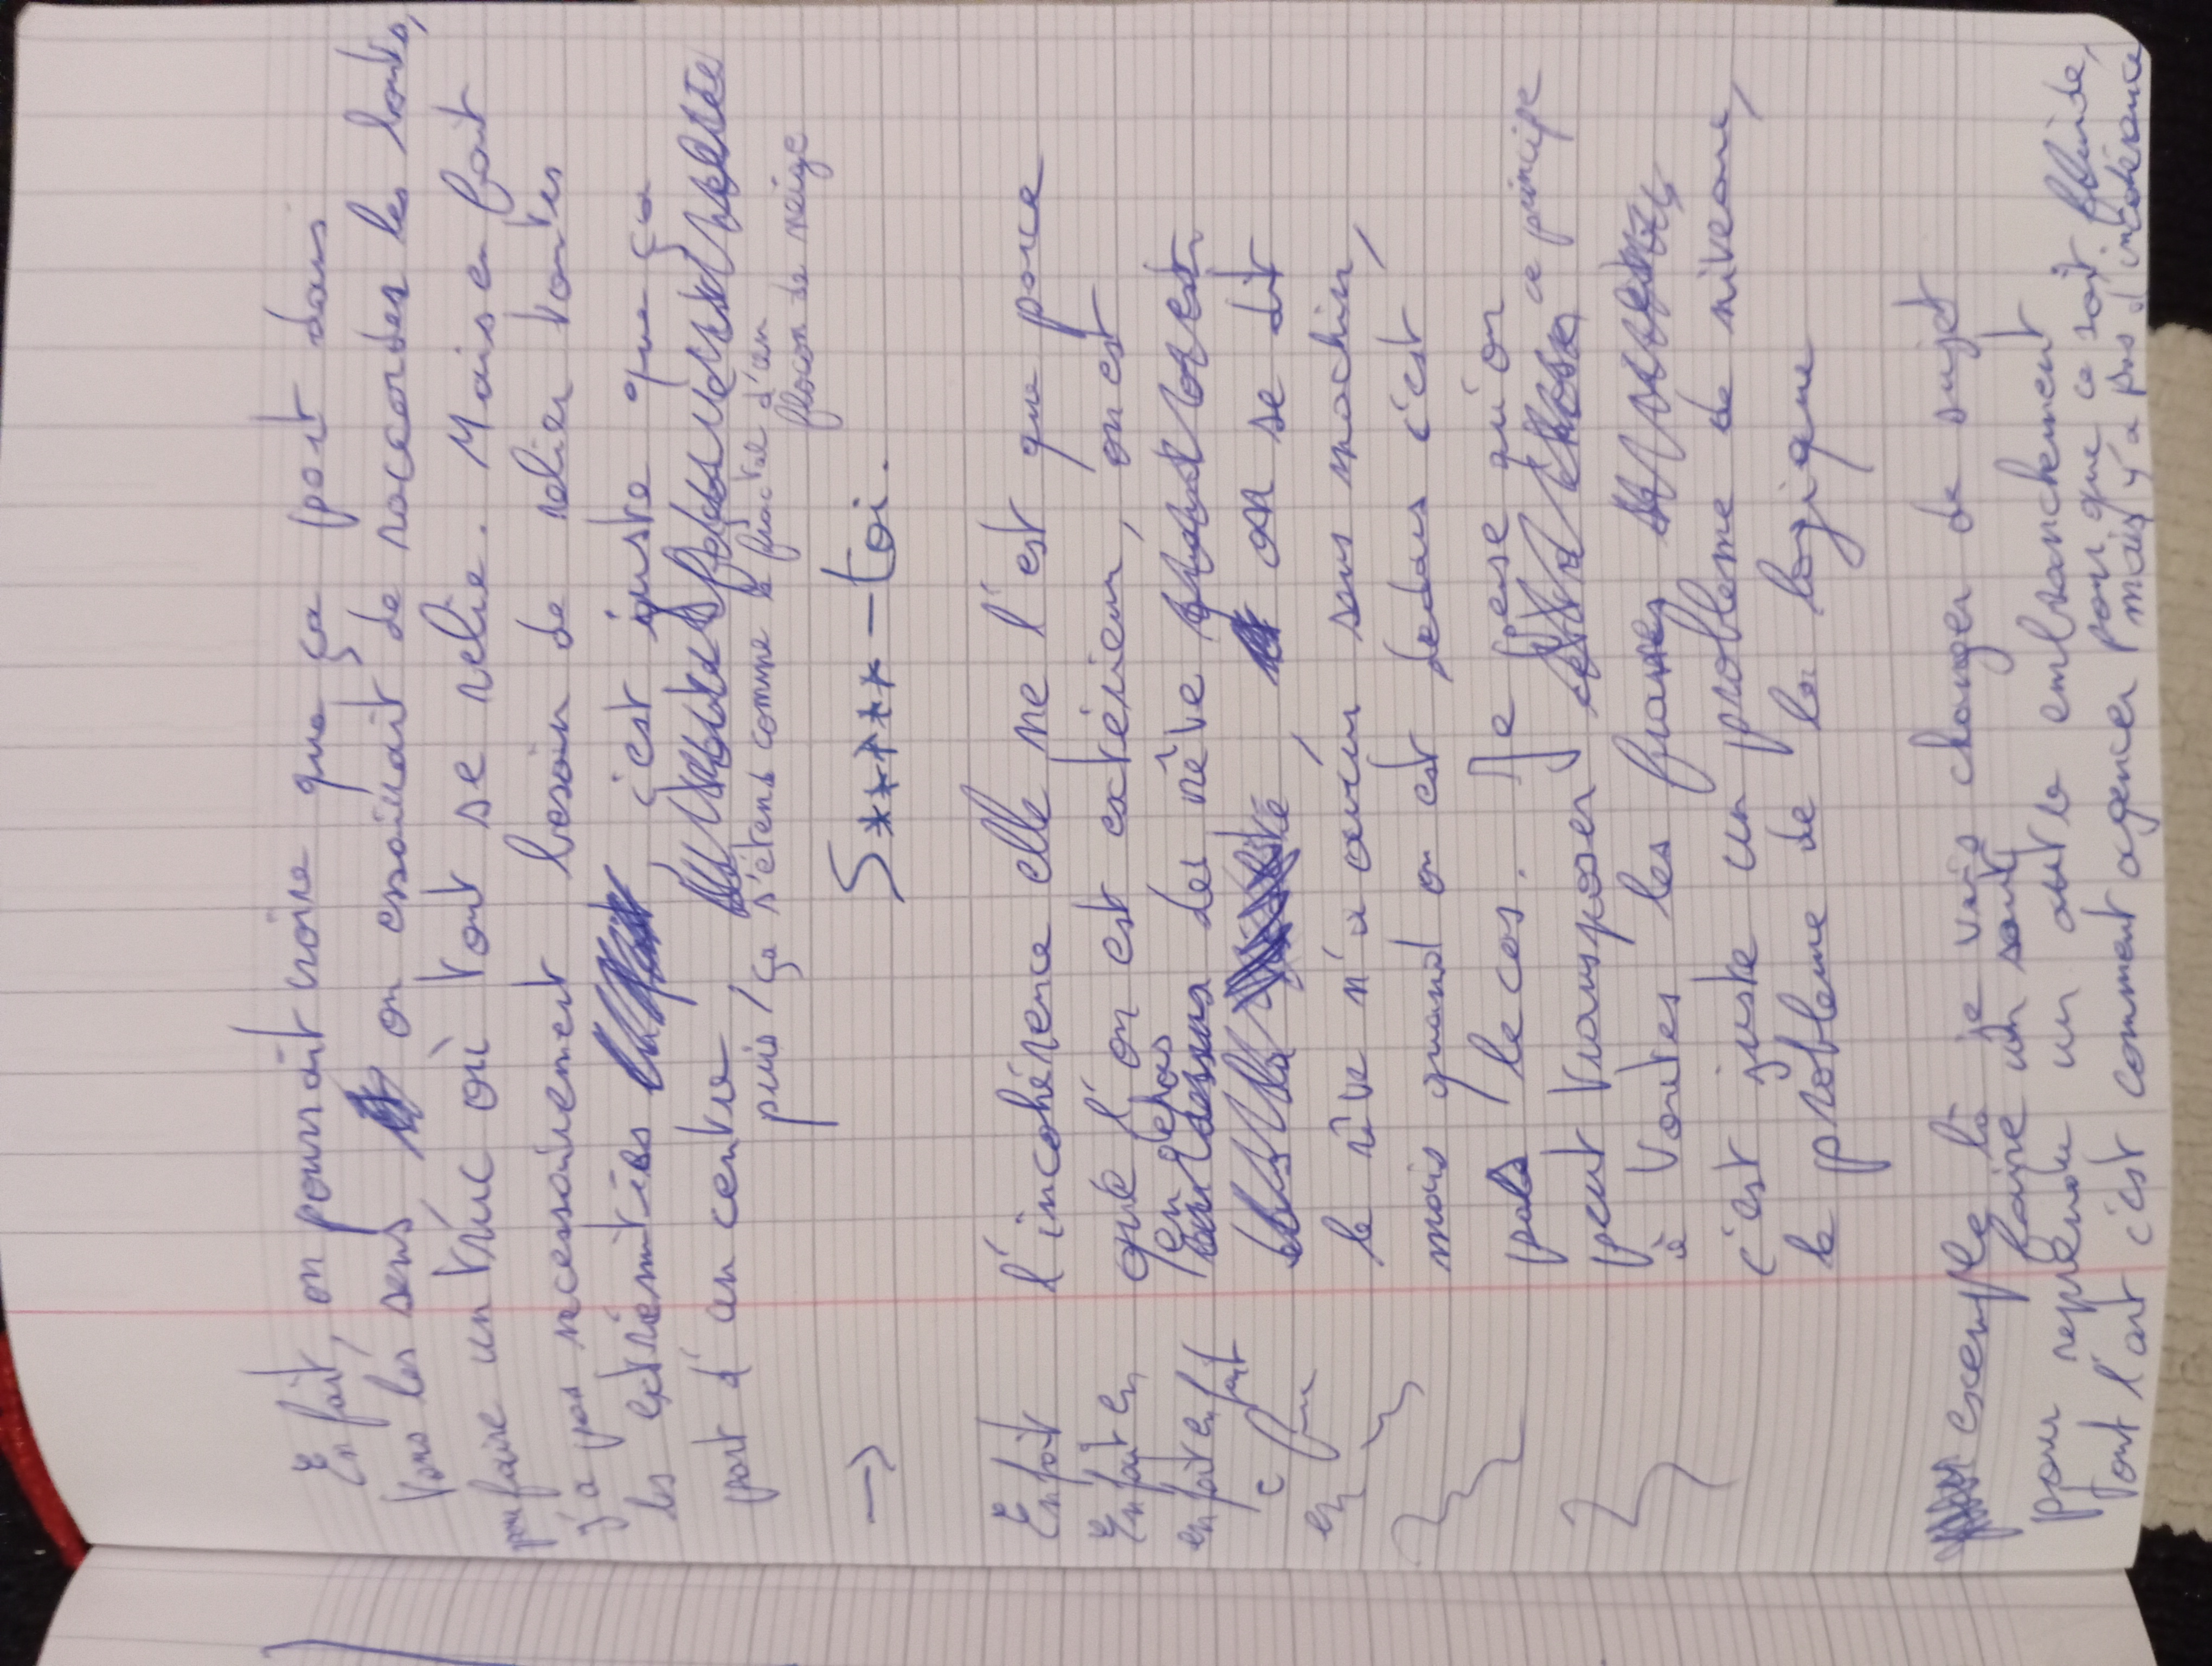 En fait, on pourrait croire que ça part dans
tous les sens, on essairait de raccorder les bouts,
pour faire un truc où tout se relie. Mais en fait
y'a pas necessairement besoin de relier toutes
les extrémités , c'est juste que ça
part d'un centre,
puis ça s'étend comme le fractal d'un
flocon de neige
→ S*****-toi.
En fait l'incohérence elle ne l'est que parce
En fait en que l'on est extérieur, on est
en depas
en fait en fait au dessus du rêve
, on se dit
en le rêve n'a aucun sens machin,
mais quand on est dedans c'est
pas le cas. Je pense qu'on
peut transposer cette chose ce principe
à toutes les
c'est juste un probleme de niveau,
le probleme de la logique
exemple là je vais changer de sujet
faire un saut
pour reprendre un autre embranchement
tout l'art c'est comment agencer pour que ce soit fluide,
mais y'a pas d'incohérence